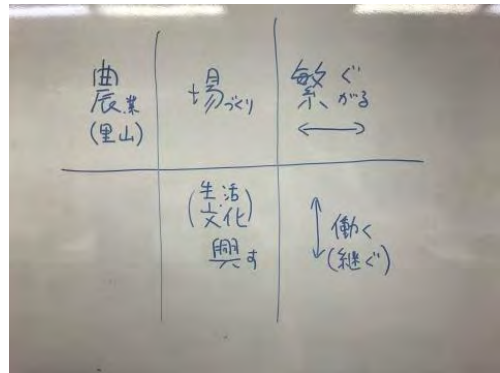 農業
(里山)
場づくり
繋ぐ
がる
(生活
文化)
興す
働く
(継ぐ)